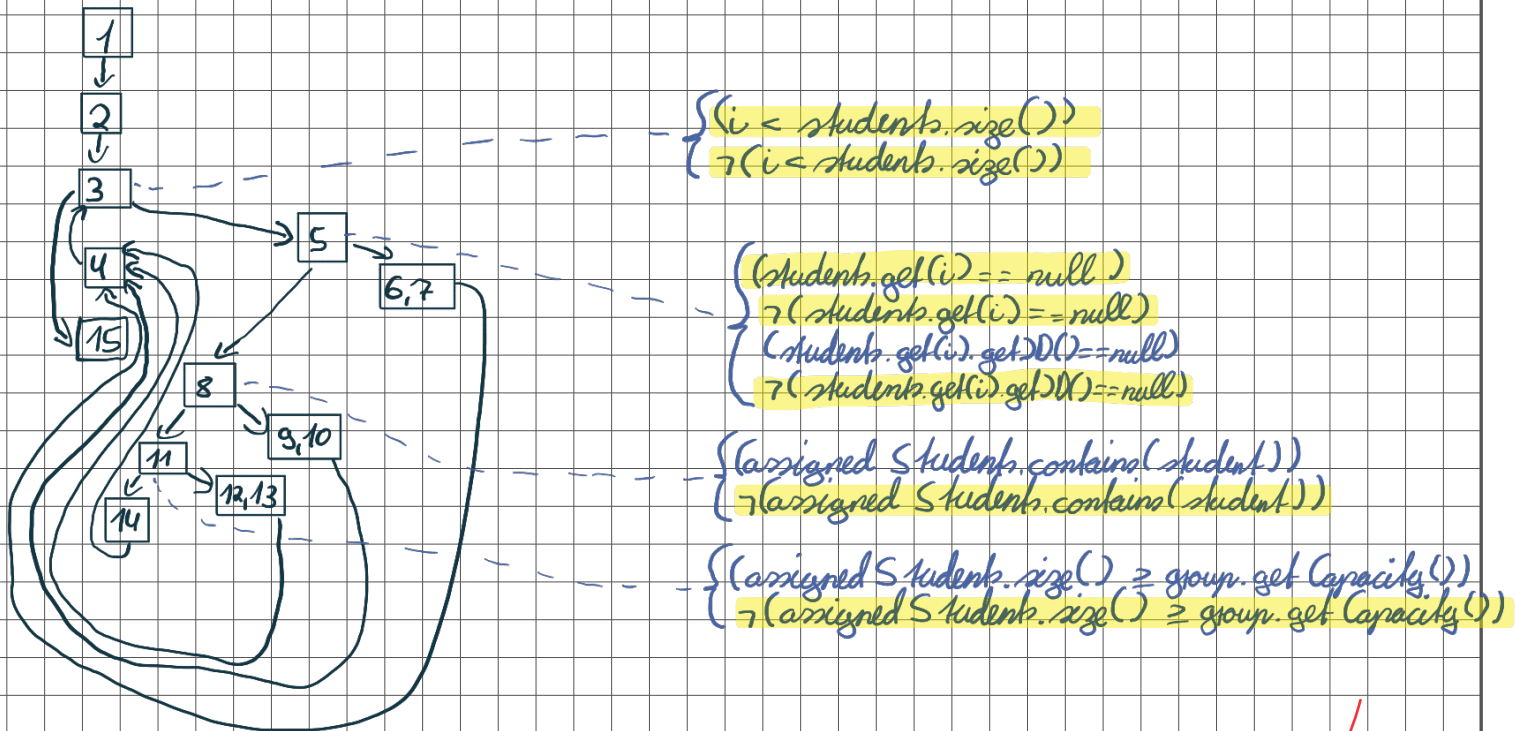 1
2
3
(i < students.size())
¬(i < students.size())
4
5
6,7
15
(students.get(i) == null )
¬(students.get(i) == null)
(students.get(i).getID()==null)
¬(students.get(i).getID()==null)
8
9,10
11
12,13
14
(assigned Students.contains(student))
¬(assigned Students.contains(student))
(assigned Students.size() ≥ group.get Capacity())
¬(assigned Students.size() ≥ group.get Capacity())